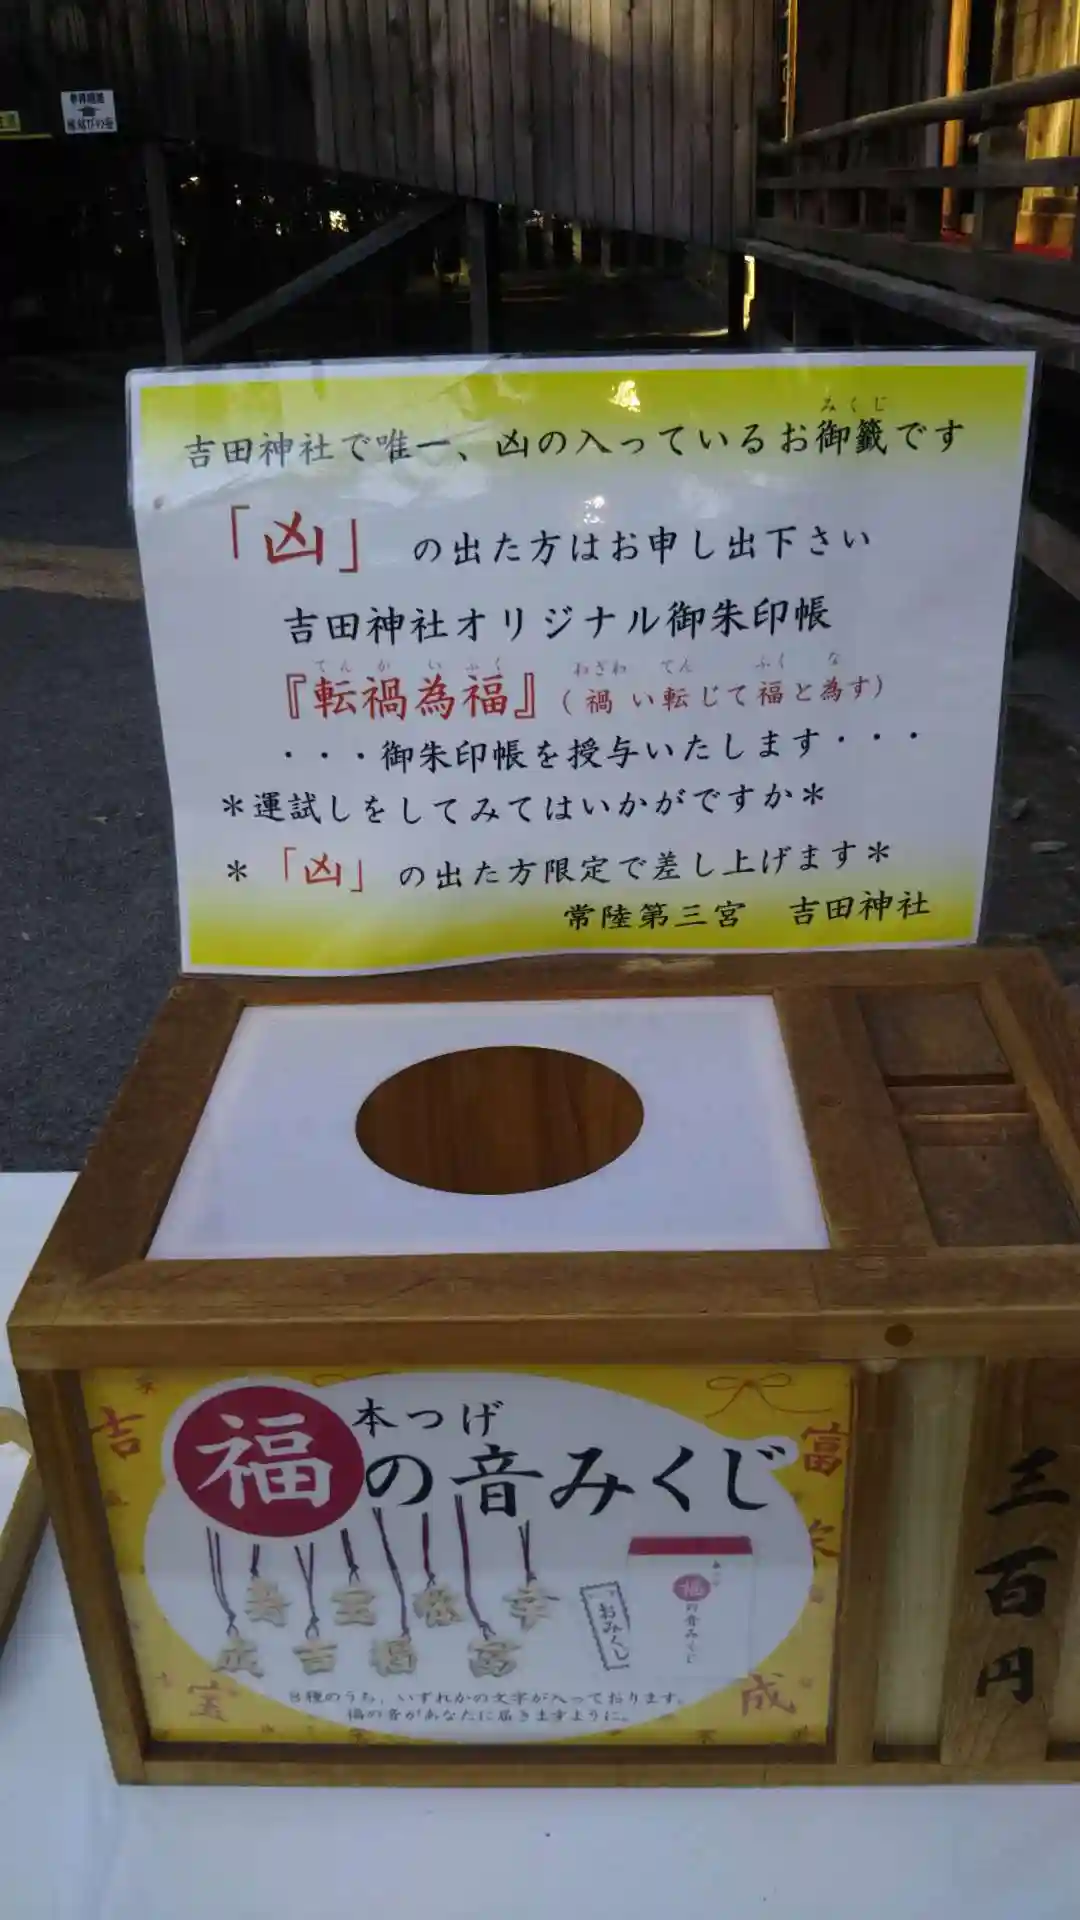 吉田神社で唯一、凶の入っているお御籤です
みくじ
「凶」の出た方はお申し出下さい
吉田神社オリジナル御朱印帳
『転禍為福』(禍い転じて福と為す)
てんかいふく わざわ てん ふく な
・・・御朱印帳を授与いたします・・・
＊運試しをしてみてはいかがですか＊
＊「凶」の出た方限定で差し上げます＊
常陸第三宮 吉田神社
本つげ
福の音みくじ
吉
富
宝
成
寿 宝 幸
成 吉 福 富
おみくじ
福の音みくじ
8種のうち、いずれかの文字が入っております。
福の音があなたに届きますように。
三百円